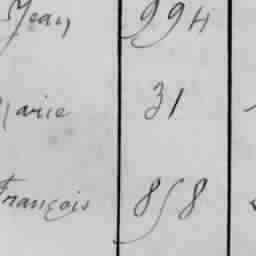 Jean 294
Marie 31
François 858